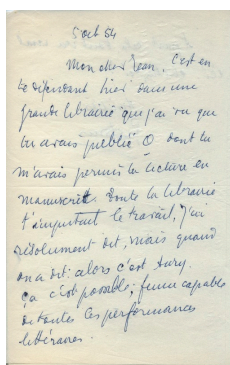 5 oct 54
Mon cher Jean, c'est en
te défendant hier dans une
grande librairie que j'ai vu que
tu avais publié O dont tu
m'avais permis la lecture en
manuscrit. Toute la librairie
t'imputant le travail, j'ai
résolument dit, mais quand
on a dit: alors c'est Aury.
ça c'est possible; femme capable
de toutes les performances
littéraires.